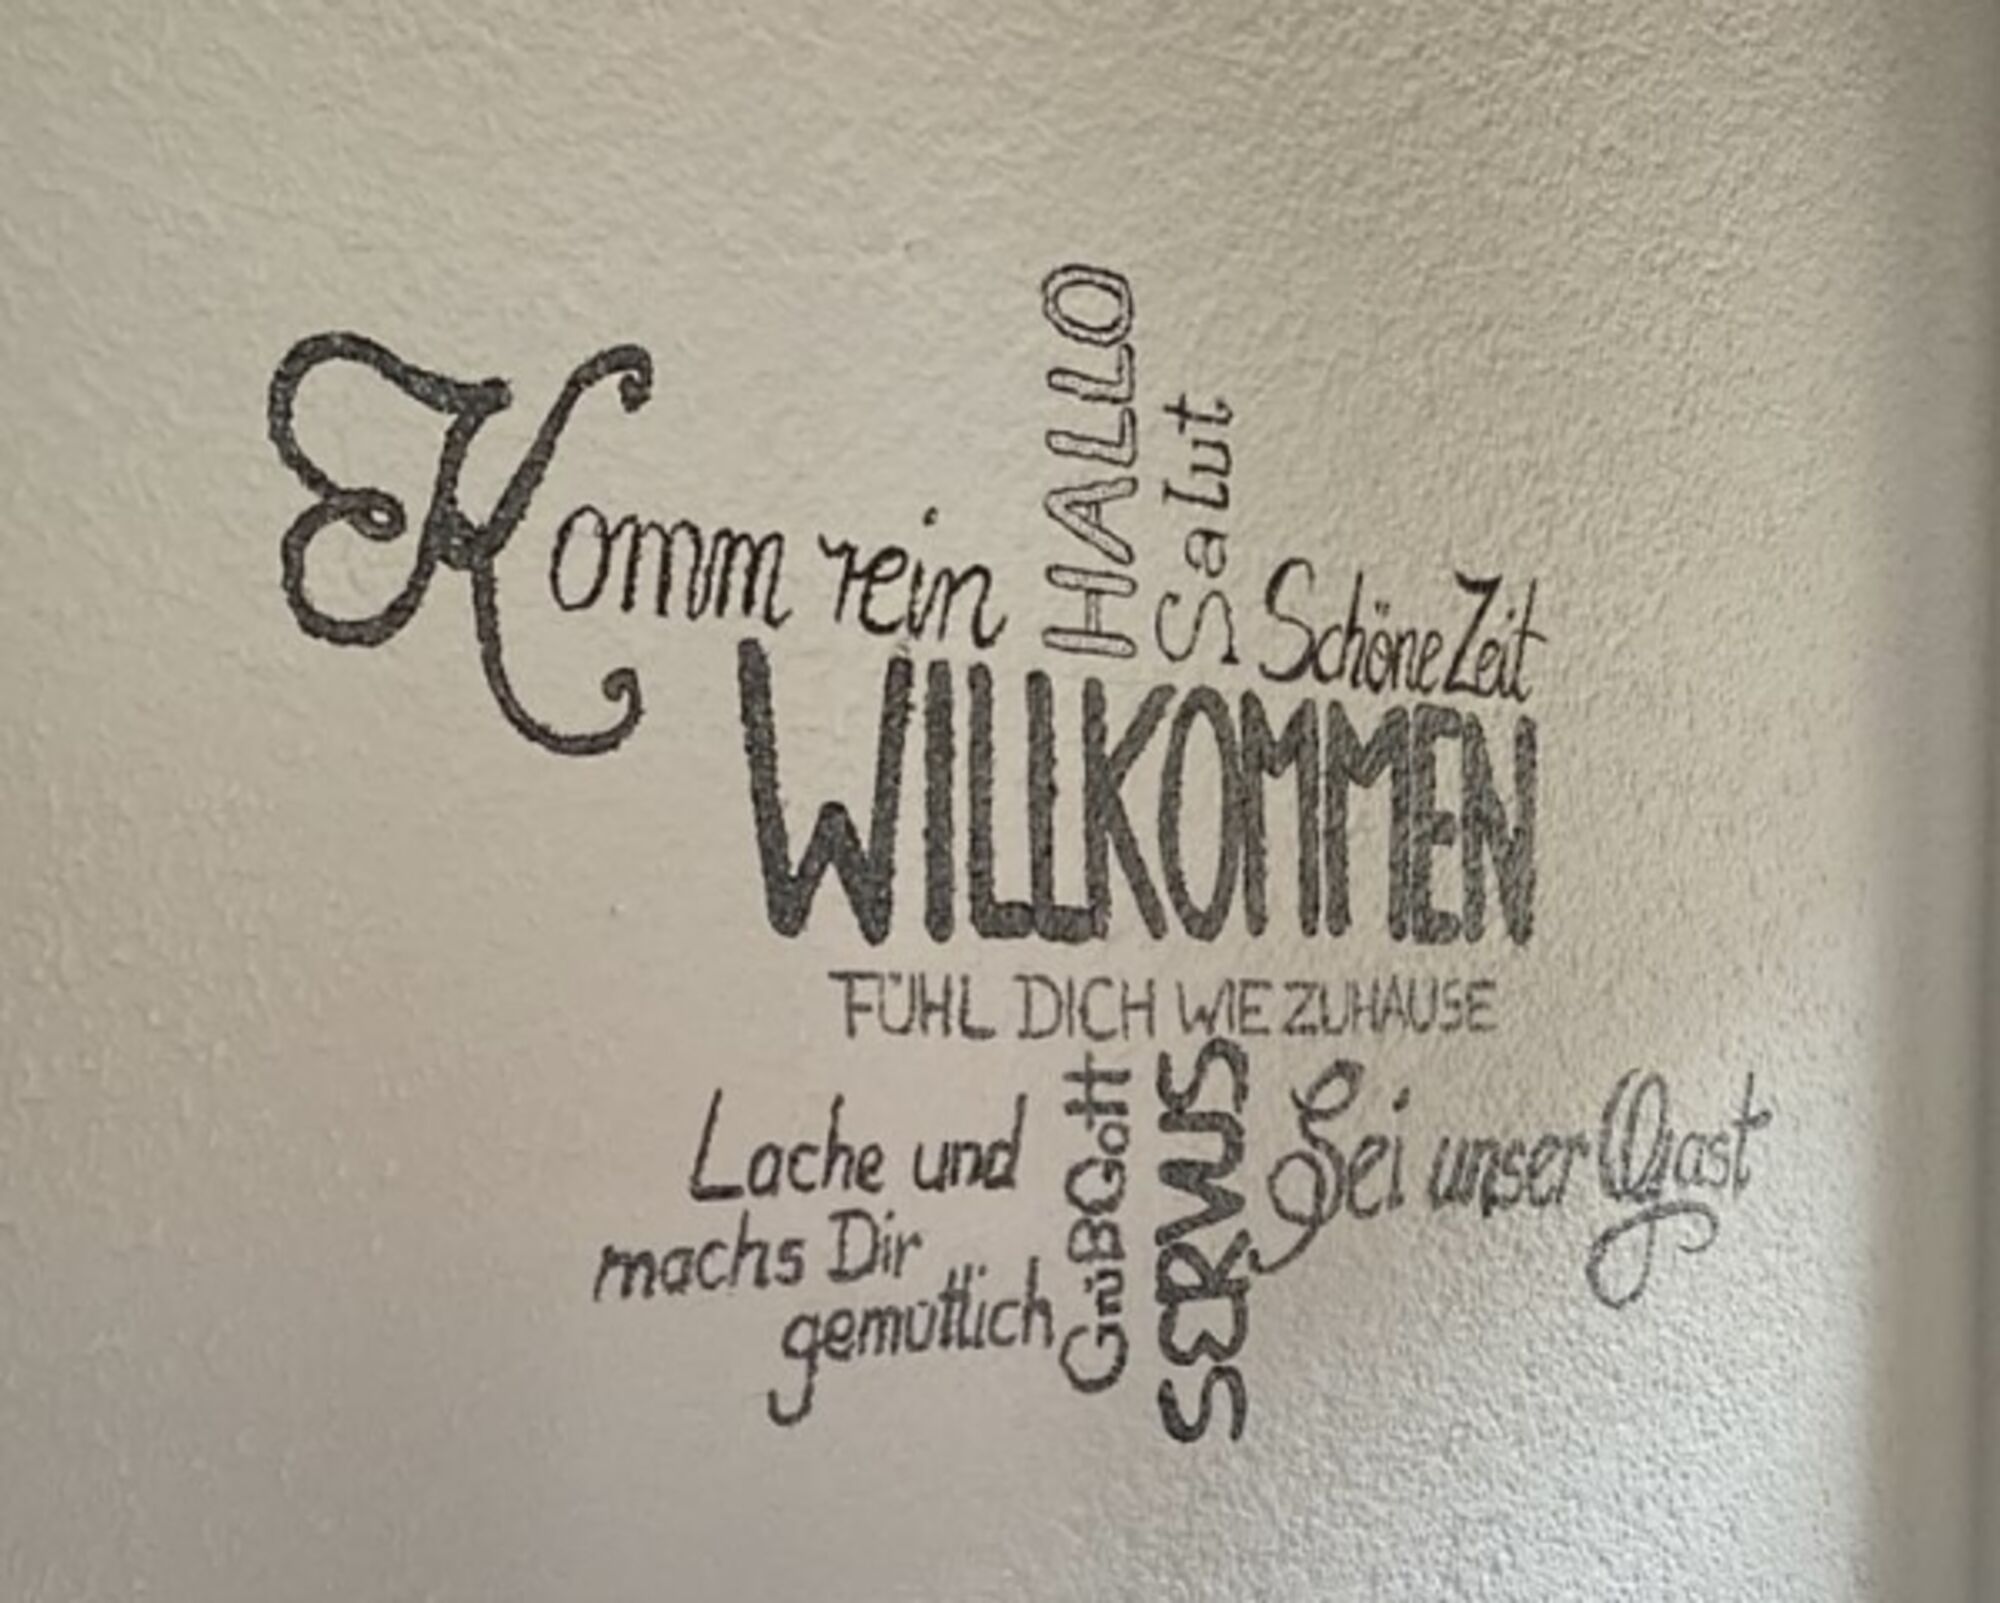 Komm rein
HALLO
Salut
Schöne Zeit
WILLKOMMEN
FÜHL DICH WIE ZUHAUSE
Lache und
machs Dir
gemütlich
GrüßGott
SERVUS
Sei unser Gast